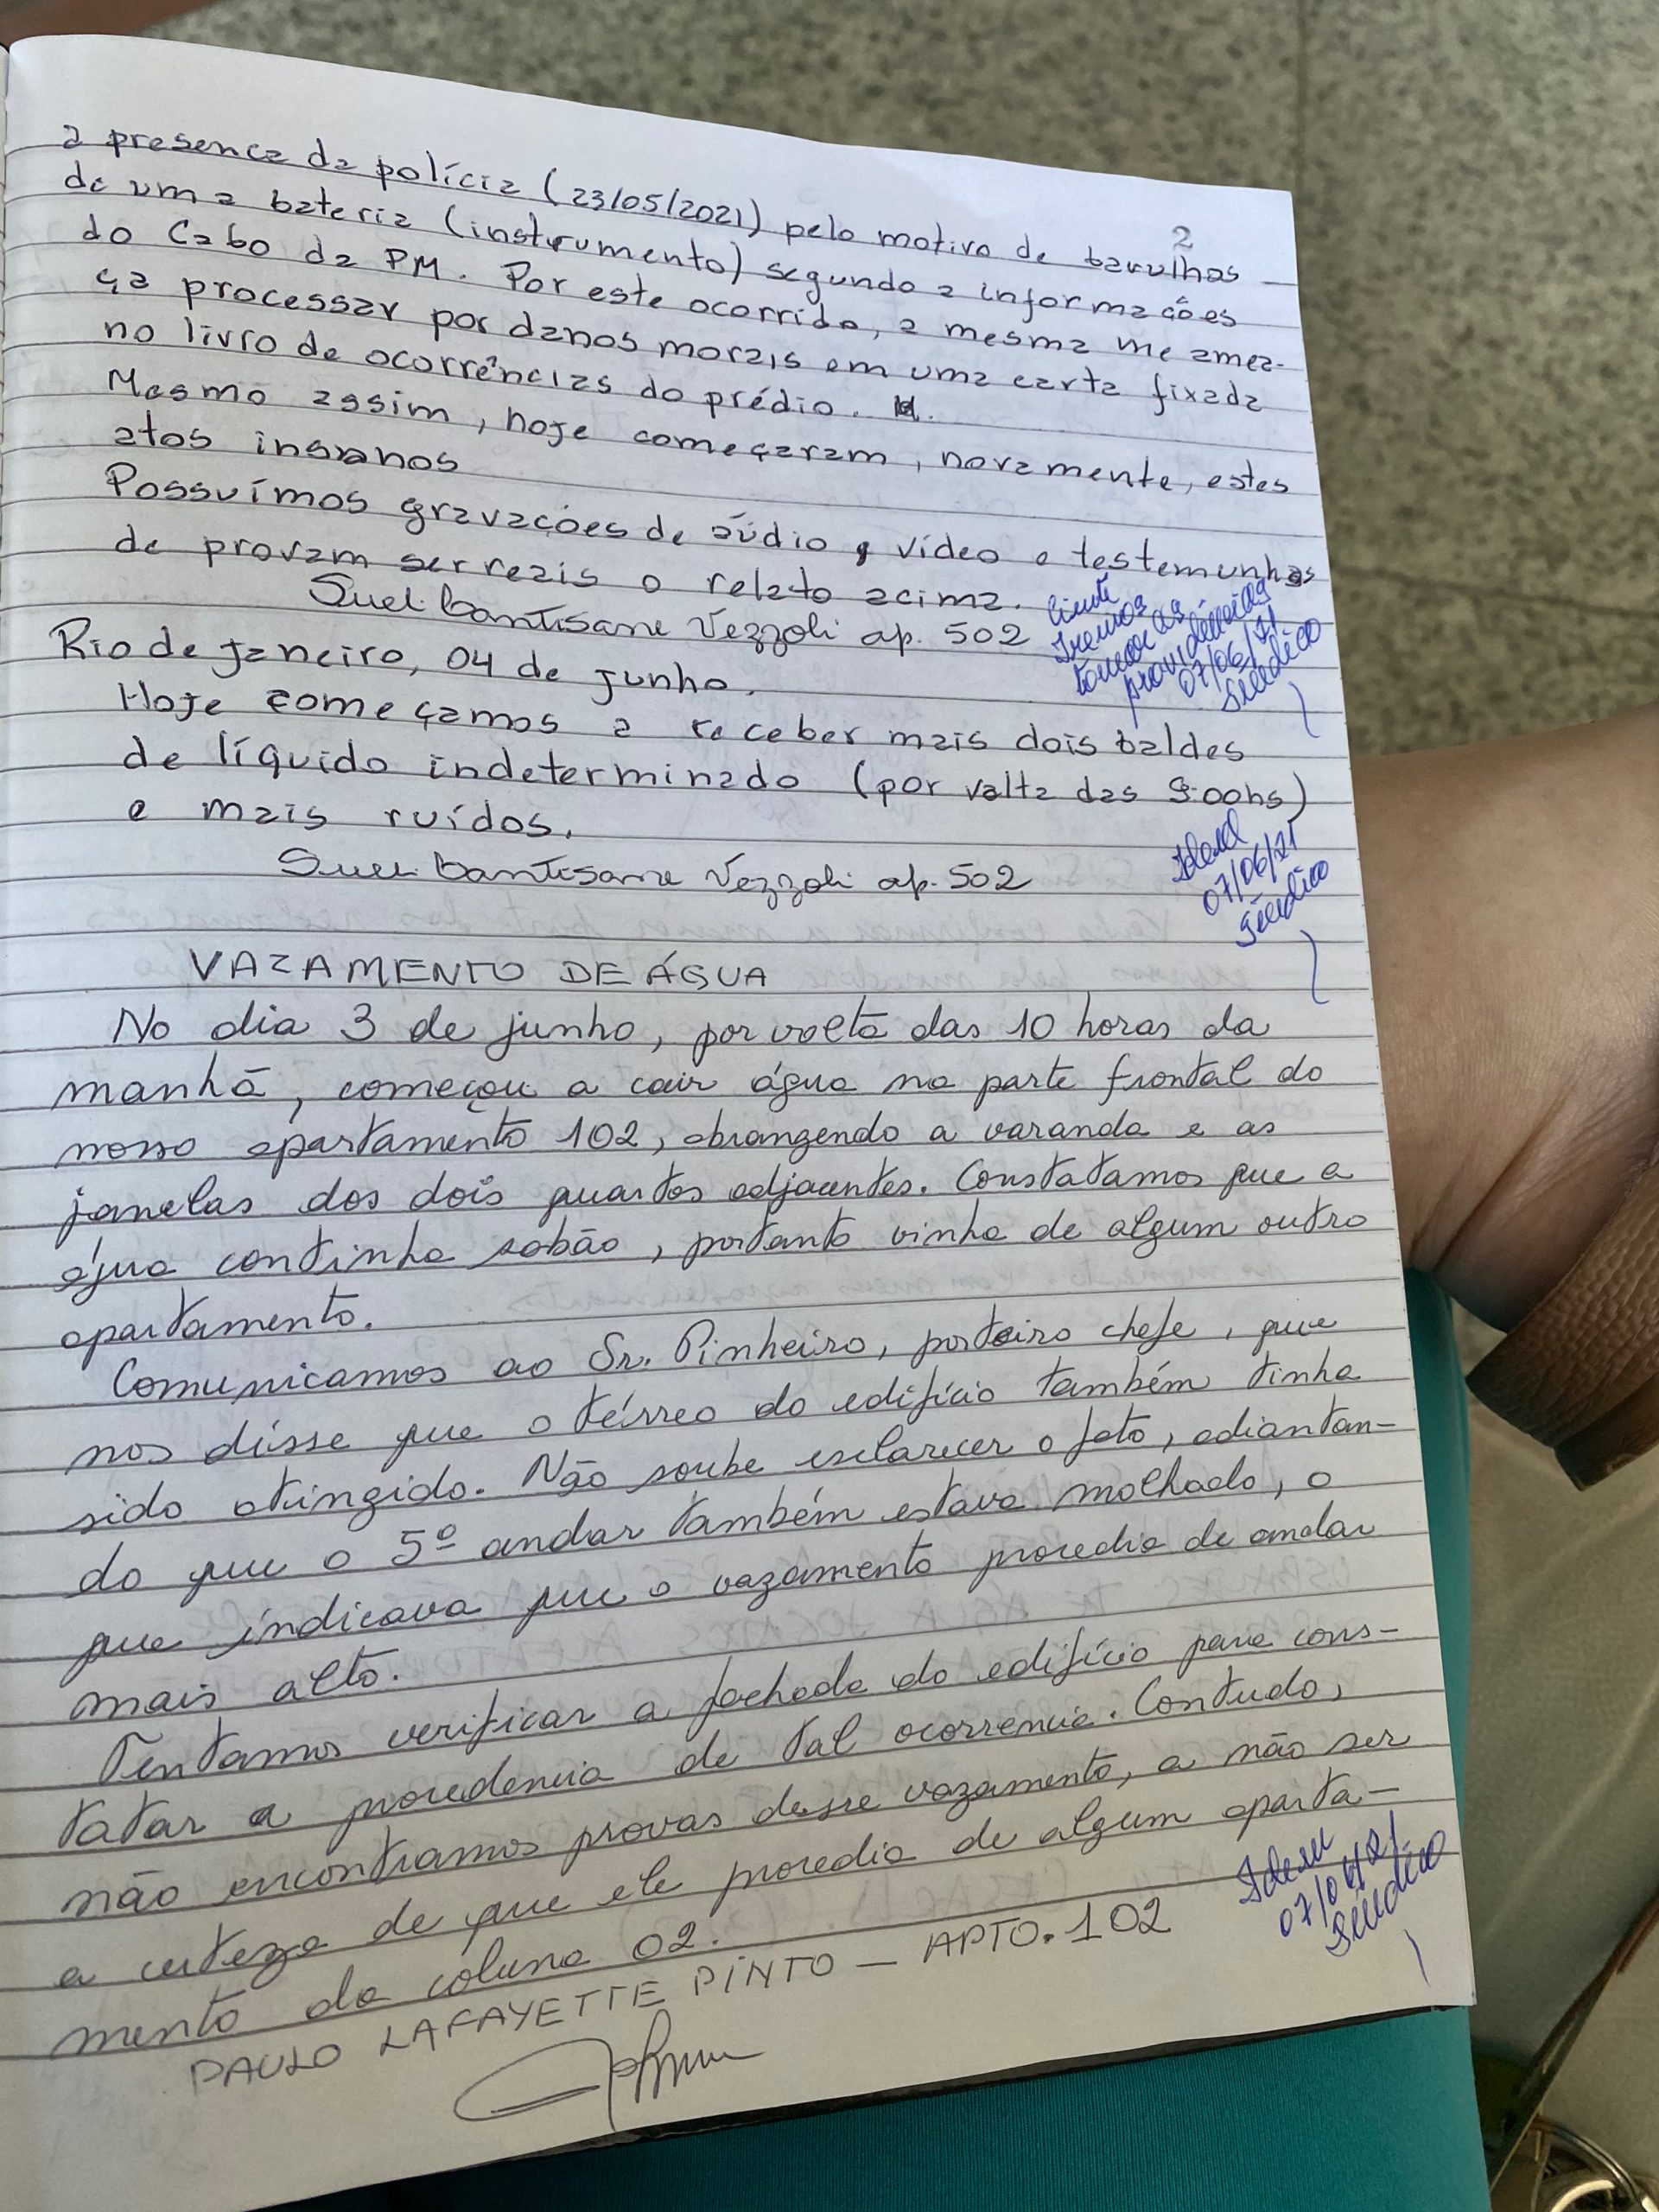 2
a presença da polícia (23/05/2021) pelo motivo de barulhos
de uma bateria (instrumento) segundo a informações
do Cabo da PM. Por este ocorrido, a mesma me amea-
ça processar por danos morais em uma carta fixada
no livro de ocorrências do prédio.
Mesmo assim, hoje começaram, novamente, estes
atos insanos
Possuímos gravações de aúdio, vídeo e testemunhas
de provam ser reais o relato acima.
Sueli Vezzoli ap. 502
Ciente
Iremos
tomar as
providências
07/06/21
Síndico
Rio de Janeiro, 04 de junho.
Hoje começamos a receber mais dois baldes
de líquido indeterminado (por volta das 9:00hs)
e mais ruídos.
Sueli Vezzoli ap. 502
Idem
07/06/21
Síndico
VAZAMENTO DE ÁGUA
No dia 3 de junho, por volta das 10 horas da
manhã, começou a cair água na parte frontal do
nosso apartamento 102, abrangendo a varanda e as
janelas dos dois quartos adjacentes. Constatamos que a
água continha sabão, portanto vinha de algum outro
apartamento.
Comunicamos ao Sr. Pinheiro, porteiro chefe, que
nos disse que o térreo do edifício também tinha
sido atingido. Não soube esclarecer o fato, adiantan-
do que o 5º andar também estava molhado, o
que indicava que o vazamento procedia de andar
mais alto.
Tentamos verificar a fachada do edifício para cons-
tatar a procedencia de tal ocorrencia. Contudo,
não encontramos provas desse vazamento, a não ser
a certeza de que ele procedia de algum aparta-
mento da coluna 02.
PAULO LAFAYETTE PINTO – APTO. 102
Idem
07/06/21
Síndico